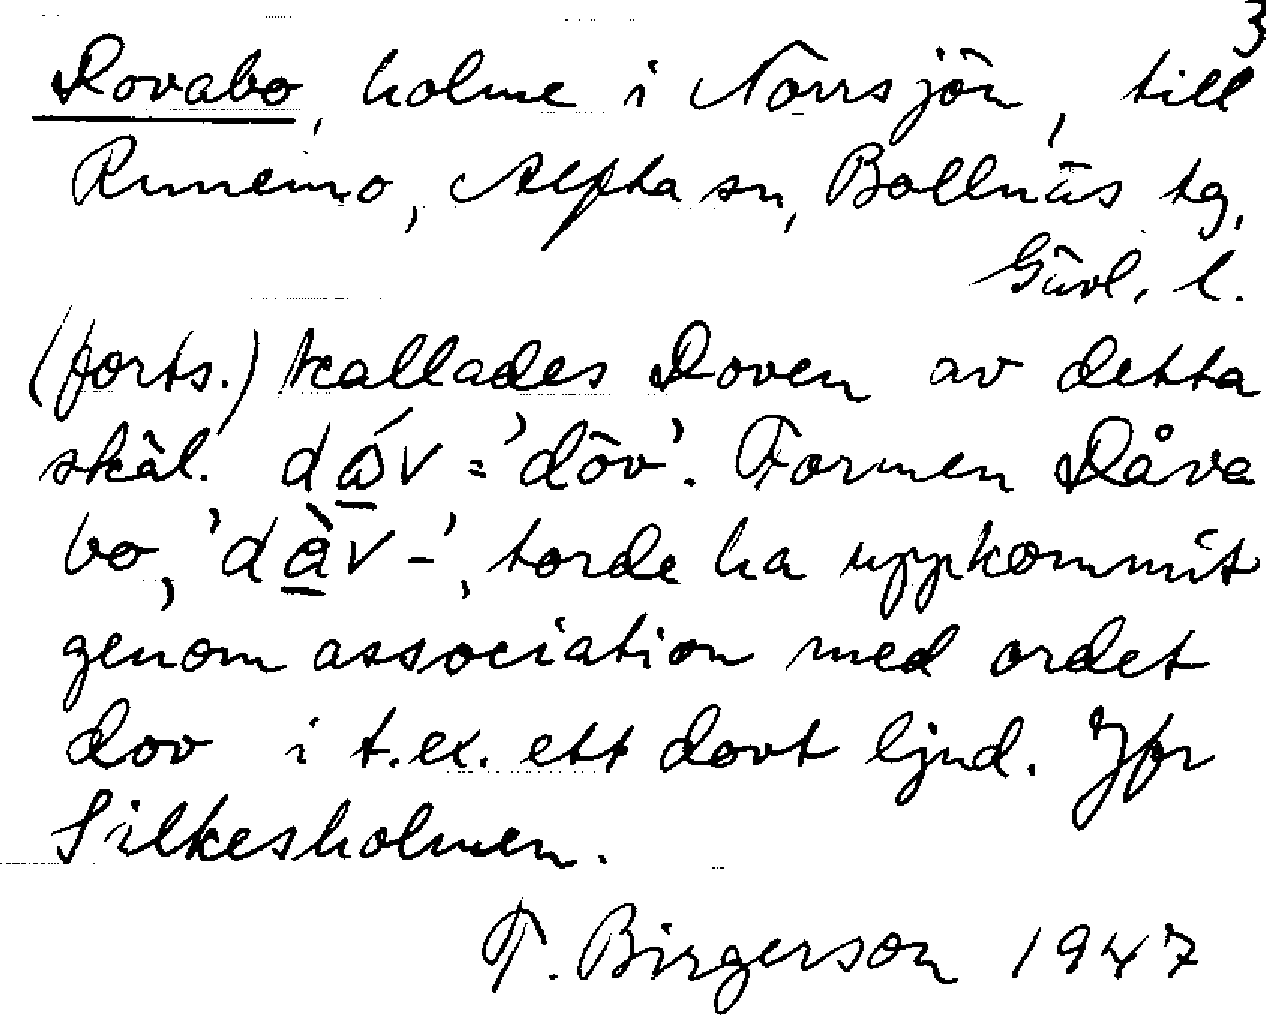 3
Dovabo, holme i Norrsjön, till
Runemo, Alfta sn, Bollnäs tg,
Gävl. l.
(forts.) kallades Doven av detta
skäl. dåv = 'döv'. Formen Dåva
bo, 'dàv-', torde ha uppkommit
genom association med ordet
dov i t.ex. ett dovt ljud. Jfr
Silkesholmen.
T. Birgerson 1947